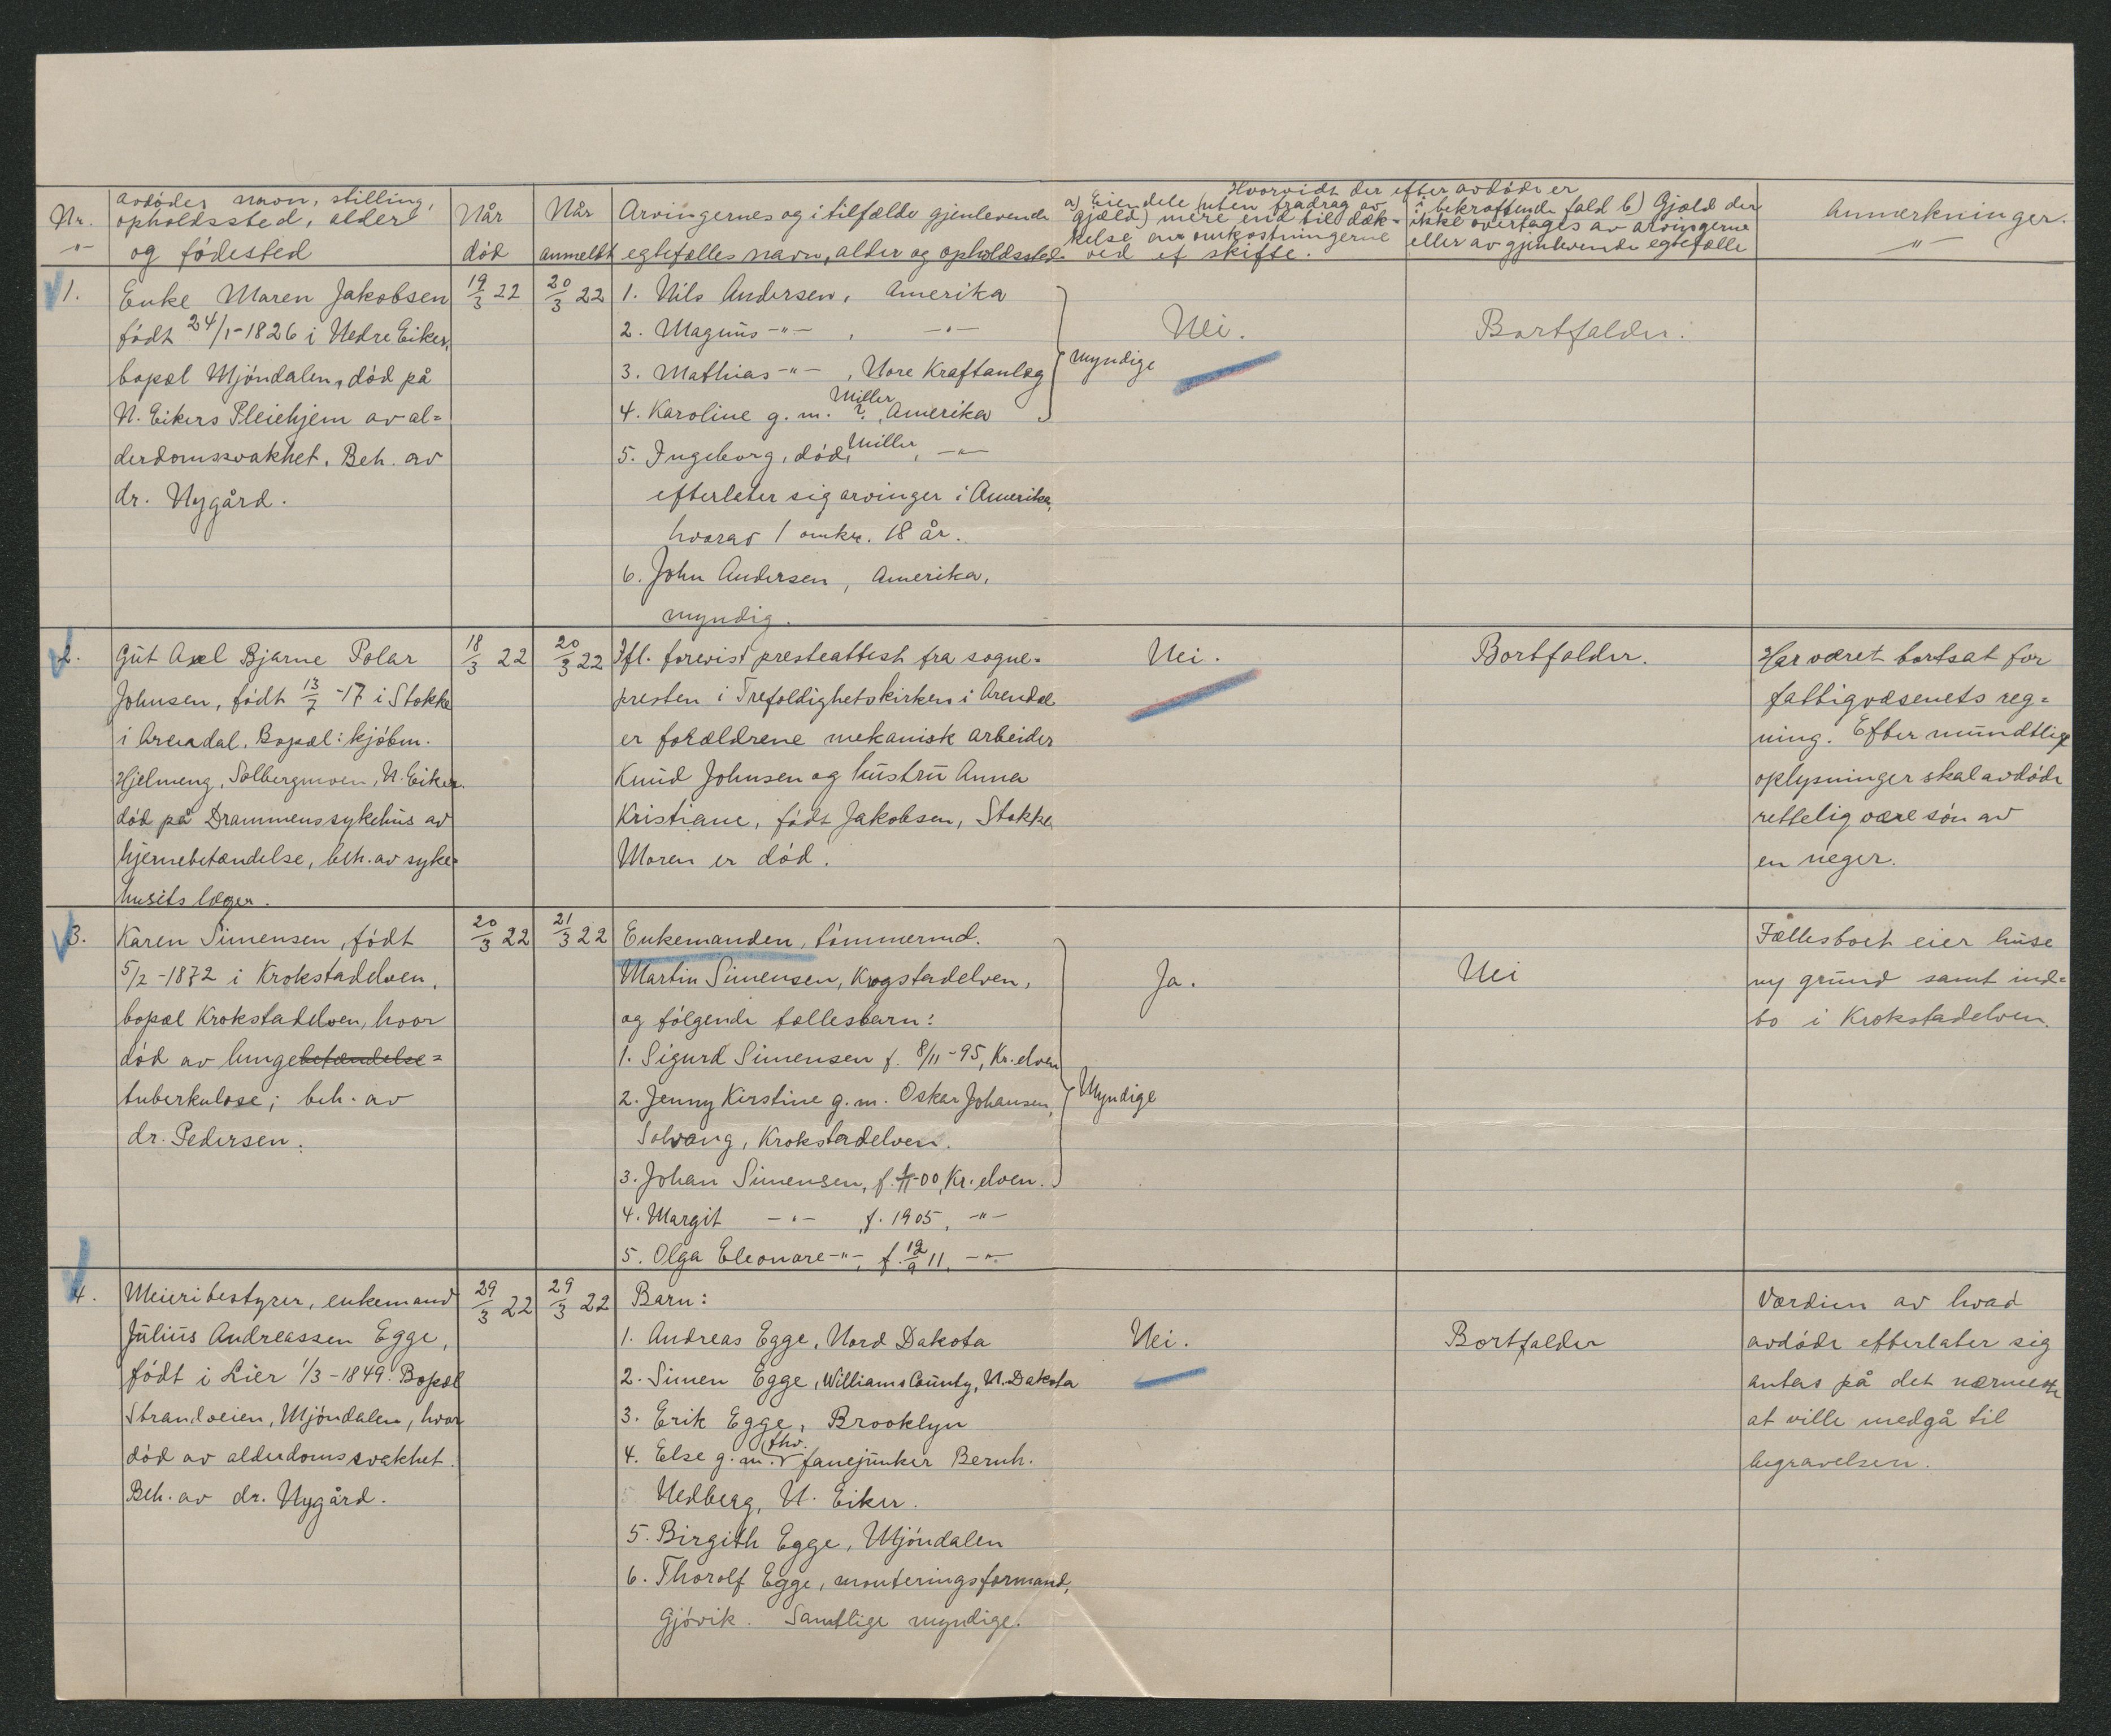 Nr.
"
avdødes navn, stilling,
opholdssted, alder
og fødested
Når
død
Når
anmeldt
Arvingernes og i tilfælde gjenlevende
egtefælles navn, alder og opholdssted.
Hvorvidt der efter avdøde er
a) Eiendele (uten fradrag av
gjæld) mere end til dæk-
kelse av omkostningerne
ved et skifte.
i bekræftende fald b) Gjæld der
ikke overtages av arvingerne
eller av gjenlevende egtefælle
Anmerkninger.
"
1.
Enke Maren Jakobsen
født 24/1-1826 i Nedre Eiker,
bopæl Mjøndalen, død på
N. Eikers Pleiehjem av al=
derdomssvakhet. Beh. av
dr. Nygård.
19/3 22
20/3 22
1. Nils Andersen, Amerika
2. Magnus -"- , -"-
3. Mathias -"- , Nore Kraftanlæg
4. Karoline g. m. ? Miller, Amerika
5. Ingeborg, død, Miller, -"-
efterlater sig arvinger i Amerika,
hvorav 1 omkr. 18 år.
6. John Andersen, Amerika,
myndig.
Myndige
Nei.
Bortfalder.
2.
Gut Axel Bjarne Polar
Johnsen, født 13/7 -17 i Stokke
i Arendal. Bopæl: kjøbm.
Hjelmeng, Solbergmoen, N. Eiker.
død på Drammens sykehus av
hjernebetændelse, beh. av syke=
husets læger.
18/3 22
20/3 22
Ifl. forevist presteattest fra sogne-
presten i Trefoldighetskirken i Arendal
er forældrene mekanisk arbeider
Knud Johnsen og hustru Anna
Kristiane, født Jakobsen, Stokke
Moren er død.
Nei.
Bortfalder.
Har været bortsat for
fattigvæsenets reg=
ning. Efter mundtlige
oplysninger skal avdøde
rettelig være søn av
en neger.
3.
Karen Simensen, født
5/2 -1872 i Krokstadelven,
bopæl Krokstadelven, hvor
død av lungebetændelse=
tuberkulose; beh. av
dr. Pedersen.
20/3 22
21/3 22
Enkemanden, tømmermd.
Martin Simensen, Krogstadelven,
og følgende fællesbarn:
1. Sigurd Simensen f. 8/11 -95, Kr.elven
2. Jenny Kirstine g. m. Oskar Johansen,
Solvang, Krokstadelven.
3. Johan Simensen, f. -00, Kr. elven.
4. Margit -"- , f. 1905, -"-
5. Olga Eleonare -"-, f. 19/9 11, -"-
Myndige
Ja.
Nei
Fællesboet eier huse
ny grund samt ind=
bo i Krokstadelven.
4.
Meieribestyrer, enkemand
Julius Andreassen Egge,
født i Lier 1/3 -1849. Bopæl
Strandveien, Mjøndalen, hvor
død av alderdomssvakhet.
Beh. av dr. Nygård.
29/3 22
29/3 22
Barn:
1. Andreas Egge, Nord Dakota
2. Simen Egge, Williams County, N. Dakota
3. Erik Egge, Brooklyn
4. Else g. m. fhv. fanejunker Bernh.
Nedberg, N. Eiker.
5. Birgith Egge, Mjøndalen
6. Thorolf Egge, monteringsformand,
Gjøvik. Samtlige myndige.
Nei.
Bortfalder
Værdien av hvad
avdøde efterlater sig
antas på det nærmeste
at ville medgå til
begravelsen.